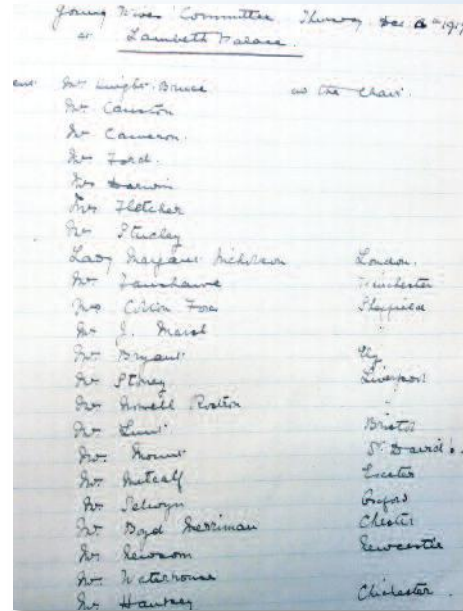 Young Wives' Committee Thursday Dec 6th 1917
at Lambeth Palace.
Mrs Knight-Bruce in the Chair.
Mrs Causton
Mrs Cameron.
Mrs Ford.
Mrs Darwin
Mrs Fletcher
Mrs Stucley
Lady Margaret Nicholson London.
Mrs Fanshawe Winchester
Mrs Cotton Fox Sheffield
Mrs J. Marsh
Mrs Bryant Ely
Mrs Stoney Liverpool
Mrs Howell
Mrs Lunn Bristol
Mrs Mount St David's.
Mrs Metcalf Exeter
Mrs Selwyn Oxford
Mrs Boyd Merriman Chester
Mrs Newsom Newcastle
Mrs Waterhouse
Mrs Hankey Chichester.